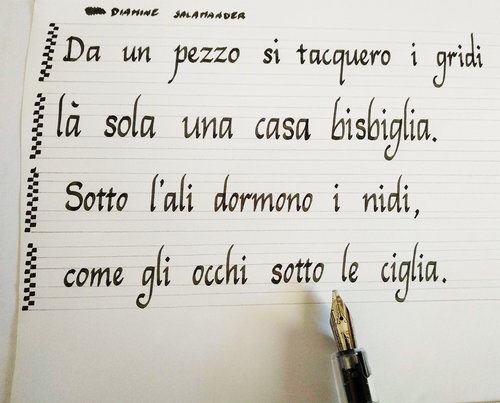 DIAMINE SALAMANDER
Da un pezzo si tacquero i gridi
là sola una casa bisbiglia.
Sotto l'ali dormono i nidi,
come gli occhi sotto le ciglia.